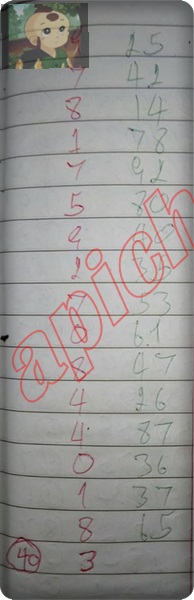 25
7 42
8 14
1 78
7 92
5
9
2
33
61
8 47
4 26
4 87
0 36
1 37
8 65
40 3
apich